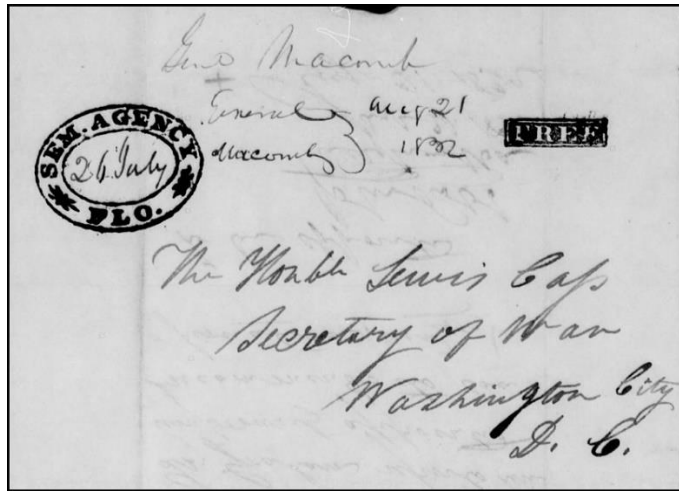 Genl Macomb
General Aug 21
Macomb 1832
SEM. AGENCY
26 July
FLO.
FREE
The Honble Lewis Cass
Secretary of War
Washington City
D. C.